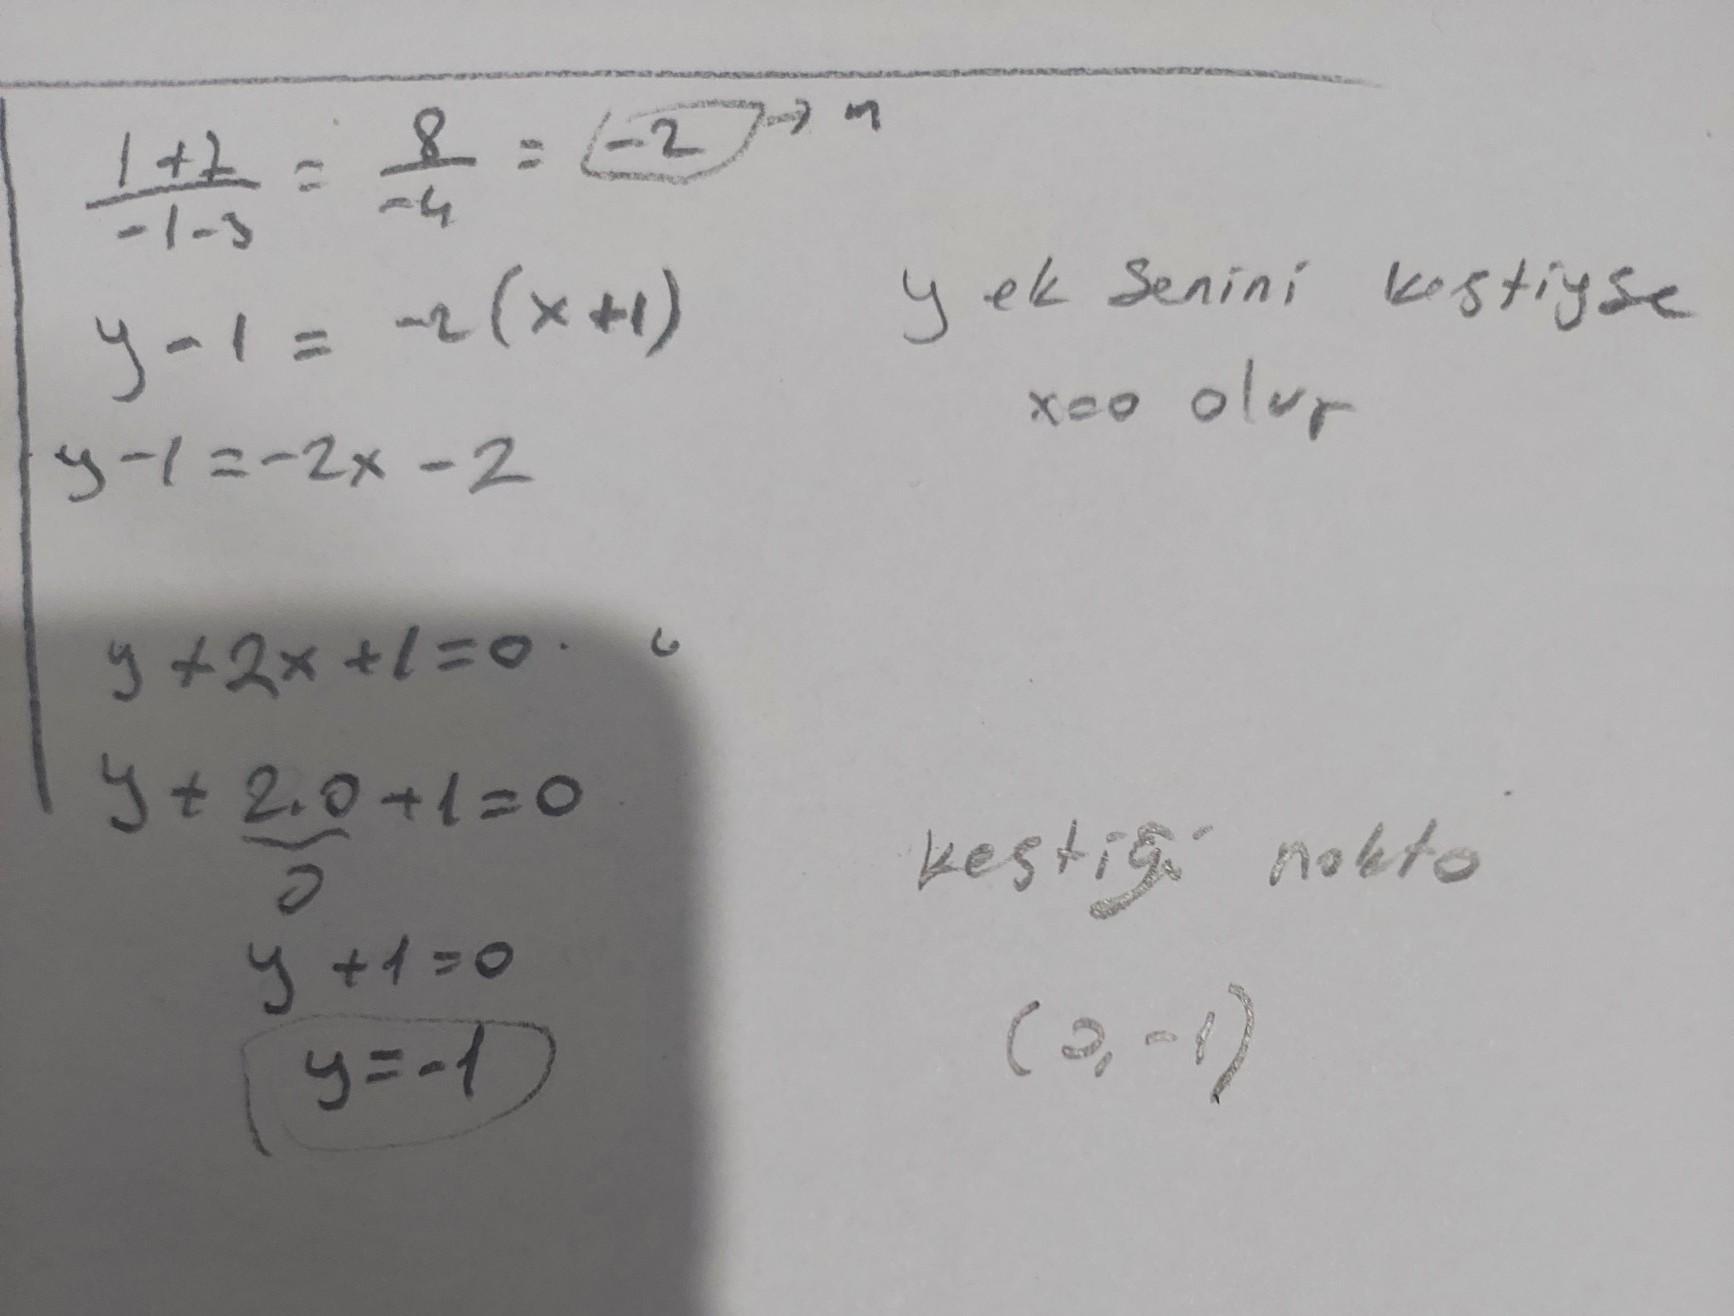 1+7 / -1-3 = 8 / -4 = -2 → m
y-1 = -2(x+1)
y ek senini kestiyse
x=0 olur
y-1=-2x-2
y+2x+1=0
y+2.0+1=0
0
kestiği nokta
y+1=0
y=-1
(0,-1)